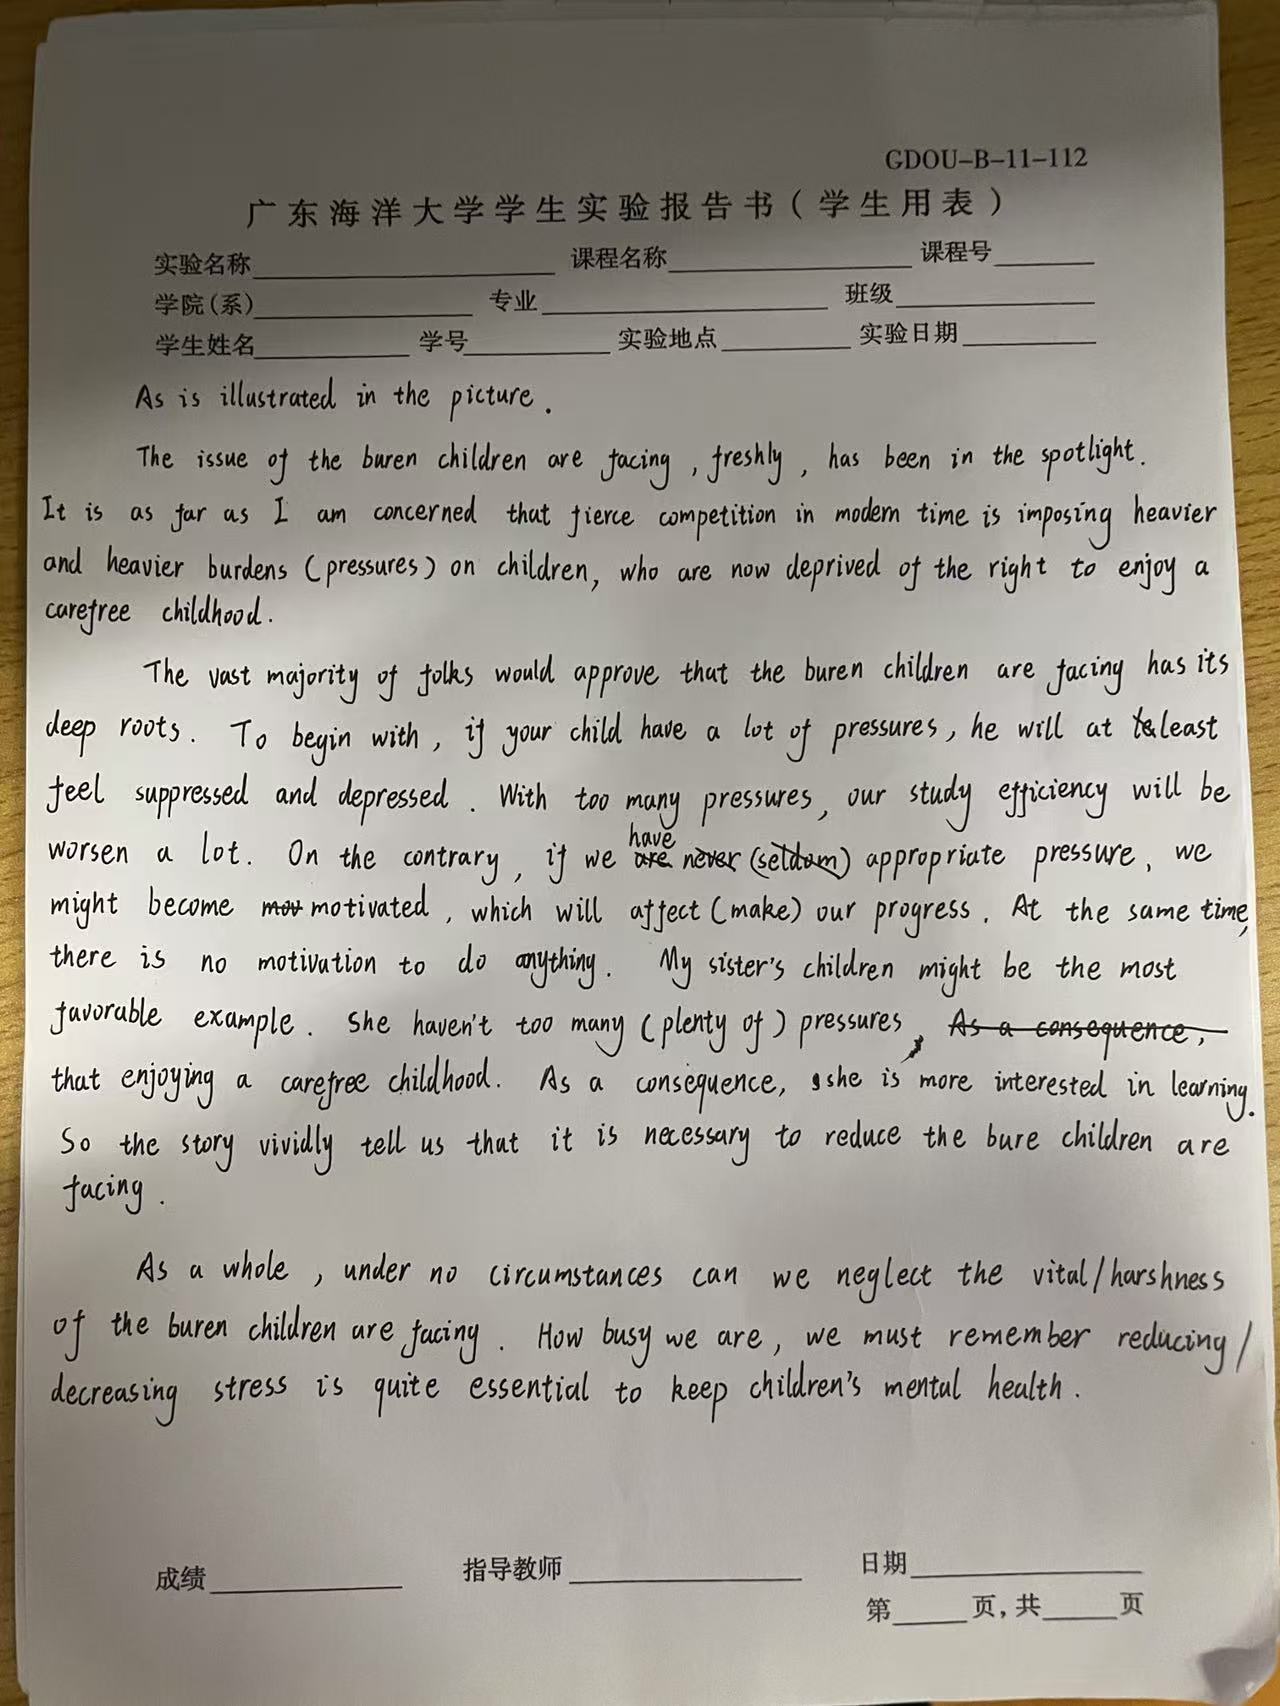 GDOU-B-11-112
广东海洋大学学生实验报告书(学生用表)
实验名称 课程名称 课程号
学院(系) 专业 班级
学生姓名 学号 实验地点 实验日期
As is illustrated in the picture.
The issue of the buren children are facing, freshly, has been in the spotlight.
It is as far as I am concerned that fierce competition in modern time is imposing heavier
and heavier burdens (pressures) on children, who are now deprived of the right to enjoy a
carefree childhood.
The vast majority of folks would approve that the buren children are facing has its
deep roots. To begin with, if your child have a lot of pressures, he will at least
feel suppressed and depressed. With too many pressures, our study efficiency will be
worsen a lot. On the contrary, if we have are never (seldom) appropriate pressure, we
might become mov motivated, which will affect (make) our progress. At the same time,
there is no motivation to do anything. My sister's children might be the most
favorable example. She haven't too many (plenty of) pressures, As a consequence,
that enjoying a carefree childhood. As a consequence, she is more interested in learning.
So the story vividly tell us that it is necessary to reduce the bure children are
facing.
As a whole, under no circumstances can we neglect the vital/harshness
of the buren children are facing. How busy we are, we must remember reducing/
decreasing stress is quite essential to keep children's mental health.
成绩 指导教师 日期
第 页,共 页